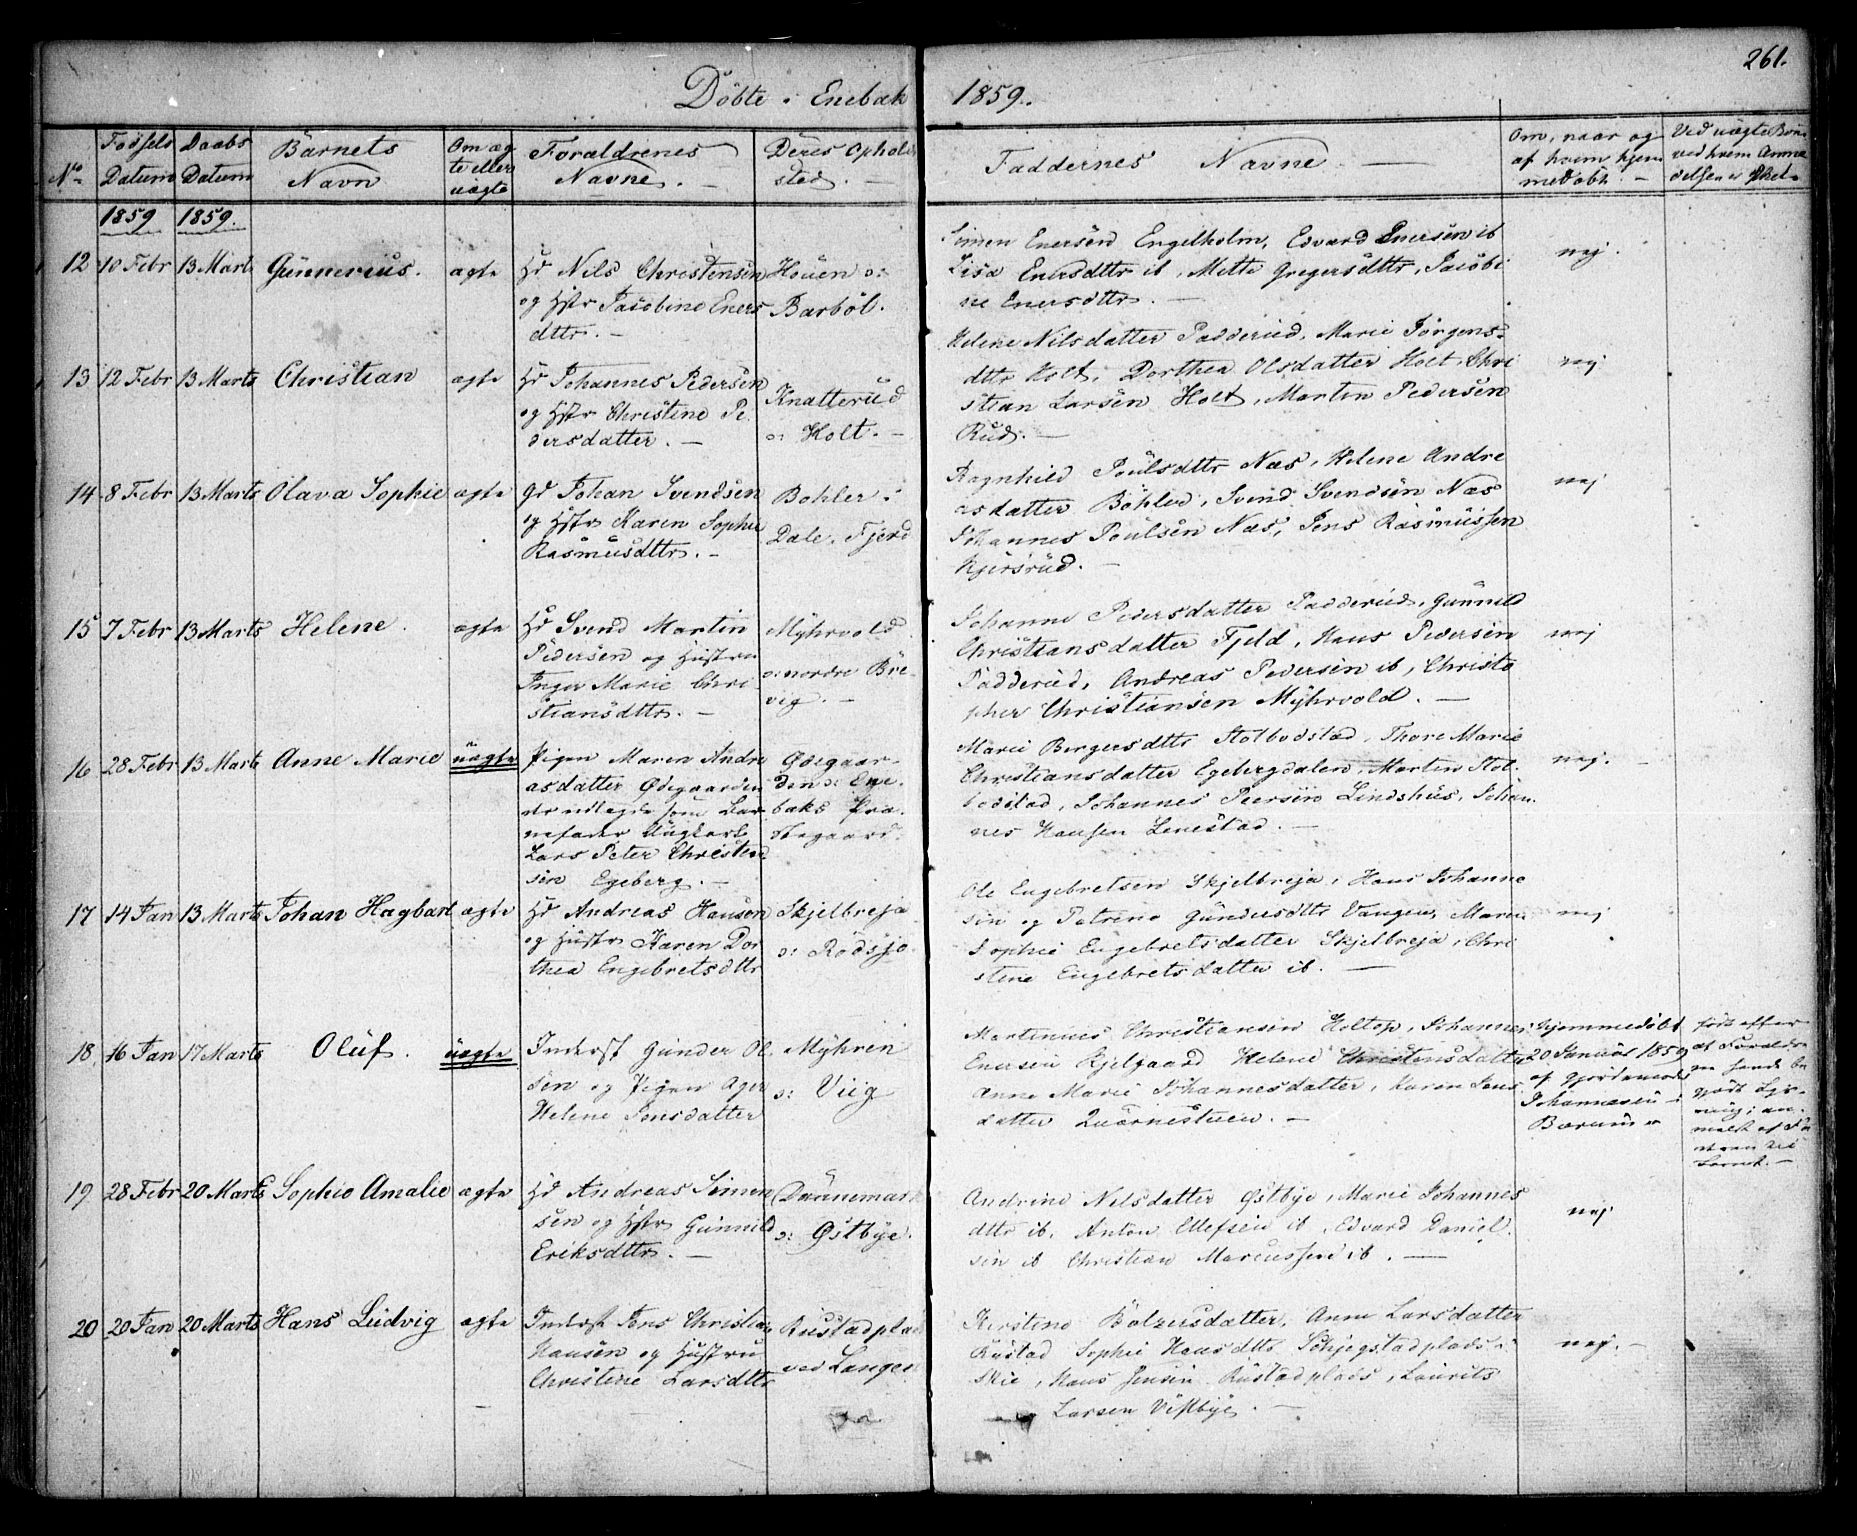 261.
Döbte i Enebak 1859.
No
Fødsels Datum
Daabs Datum
Barnets Navn
Om ægte eller uægte
Forældrenes Navne.
Deres Opholdsted.
Faddernes Navne
Om, naar og af hvem hjemmedøbt.
Ved uægte Børn ved hvem Anmeldelsen er skeet
1859 1859.
12 10 Febr 13 Marts Gunnerius. ægte
Hd Nils Christensen
og Hstr Jacobine Eners
dttr. -
Houen o:
Barböl.
Simen Enersön Engelholm, Edvard Enersen ib
Lisa Enersdttr ib, Mette Gregersdttr, Jacobi
ne Enersdttr. -
nej.
13 12 Febr 13 Marts Christian ægte
Hd Johannes Pedersen
og Hstr Christine Pe
dersdatter. -
Knatterud
o: Holt. -
Helene Nilsdatter Padderud, Marie Jörgens
dttr Holt, Dorthea Olsdatter Holt, Chri
stian Larsen Holt, Marten Pedersen
Rud. -
nej
14 8 Febr 13 Marts Olava Sophie ægte
gd Johan Svendsen
og Hstr Karen Sophie
Rasmusdttr. -
Bohler i
Dale. Fjerd
Ragnhild Poulsdttr Næs, Helene Andre
asdatter Böhler, Svend Svendsen Næs
Johannes Poulsen Næs, Jens Rasmussen
Kjersrud. -
nej
15 7 Febr 13 Marts Helene. ægte
Hd Svend Martin
Pedersen og Hustru
Inger Marie Chri
stiansdttr. -
Myhrvold
o: nordre Bre
vig. -
Johanne Pedersdatter Padderud, Gunnild
Christiansdatter Fjeld, Hans Pedersen
Padderud, Andreas Pedersen ib, Christo
pher Christiansen Myhrvold. -
nej
16 28 Febr 13 Marts Anne Marie uægte
Pigen Maren Andre
asdatter Ødegaarden
der udlagde som Bar
nefader Ungkarl
Lars Peter Christian
sen Egeberg. -
Ødegaar-
den o: Ene-
baks Præ
stegaard.
Marie Borgersdttr Stolbodstad, Thore Marie
Christiansdatter Egebergdalen, Marten Stol
bodstad, Johannes Peersen Lindshus, Johan
nes Hansen Lenestad. -
nej. -
17 14 Jan 13 Marts Johan Hagbart ægte
Hd Andreas Hansen
og Hustr Karen Dor
thea Engebretsdttr
Skjelbreja
o: Rödsjo
Ole Engebretsen Skjelbreja, Hans Johanne
sen og Petrine Gundersdttr Vangen, Maren
Sophie Engebretsdatter Skjelbreja, Chri
stine Engebretsdatter ib. -
nej
18 16 Jan 17 Marts Oluf. uægte
Inderst Gunder Ol
sen og Pigen Ager
Helene Jensdatter
Myhren
o: Viig
Martinius Christiansen Holtop, Johannes
Enersen Kjelgaard Helene Christensdatter
Anne Marie Johannesdatter, Karen Jens
datter Quærnestuen. -
hjemmedöbt
20 Januar 1859
af Gjordemoder
Johannesen i
Bærum
født efter
at Foræld
ne havde be
19 28 Febr 20 Marts Sophie Amalie ægte
Hd Andreas Simen
sen og Hstr Gunnild
Eriksdttr. -
Dannemark
o: Østbye.
Andrine Nilsdatter Østbye, Marie Johannes
dttr ib, Anton Ellefsen ib, Edvard Daniel
sen ib Christian Marcussen ib. -
nej
20 20 Jan 20 Marts Hans Ludvig ægte
Inderst Jens Christian
Hansen og Hustru
Christine Larsdttr
Rustadplads
ved Langen
Kerstine Bolzersdatter, Anne Larsdatter
Rustad Sophie Hansdttr
Skie, Hans Jensen Rustadplads, Laurits
Larsen Vestbye. -
nej. -